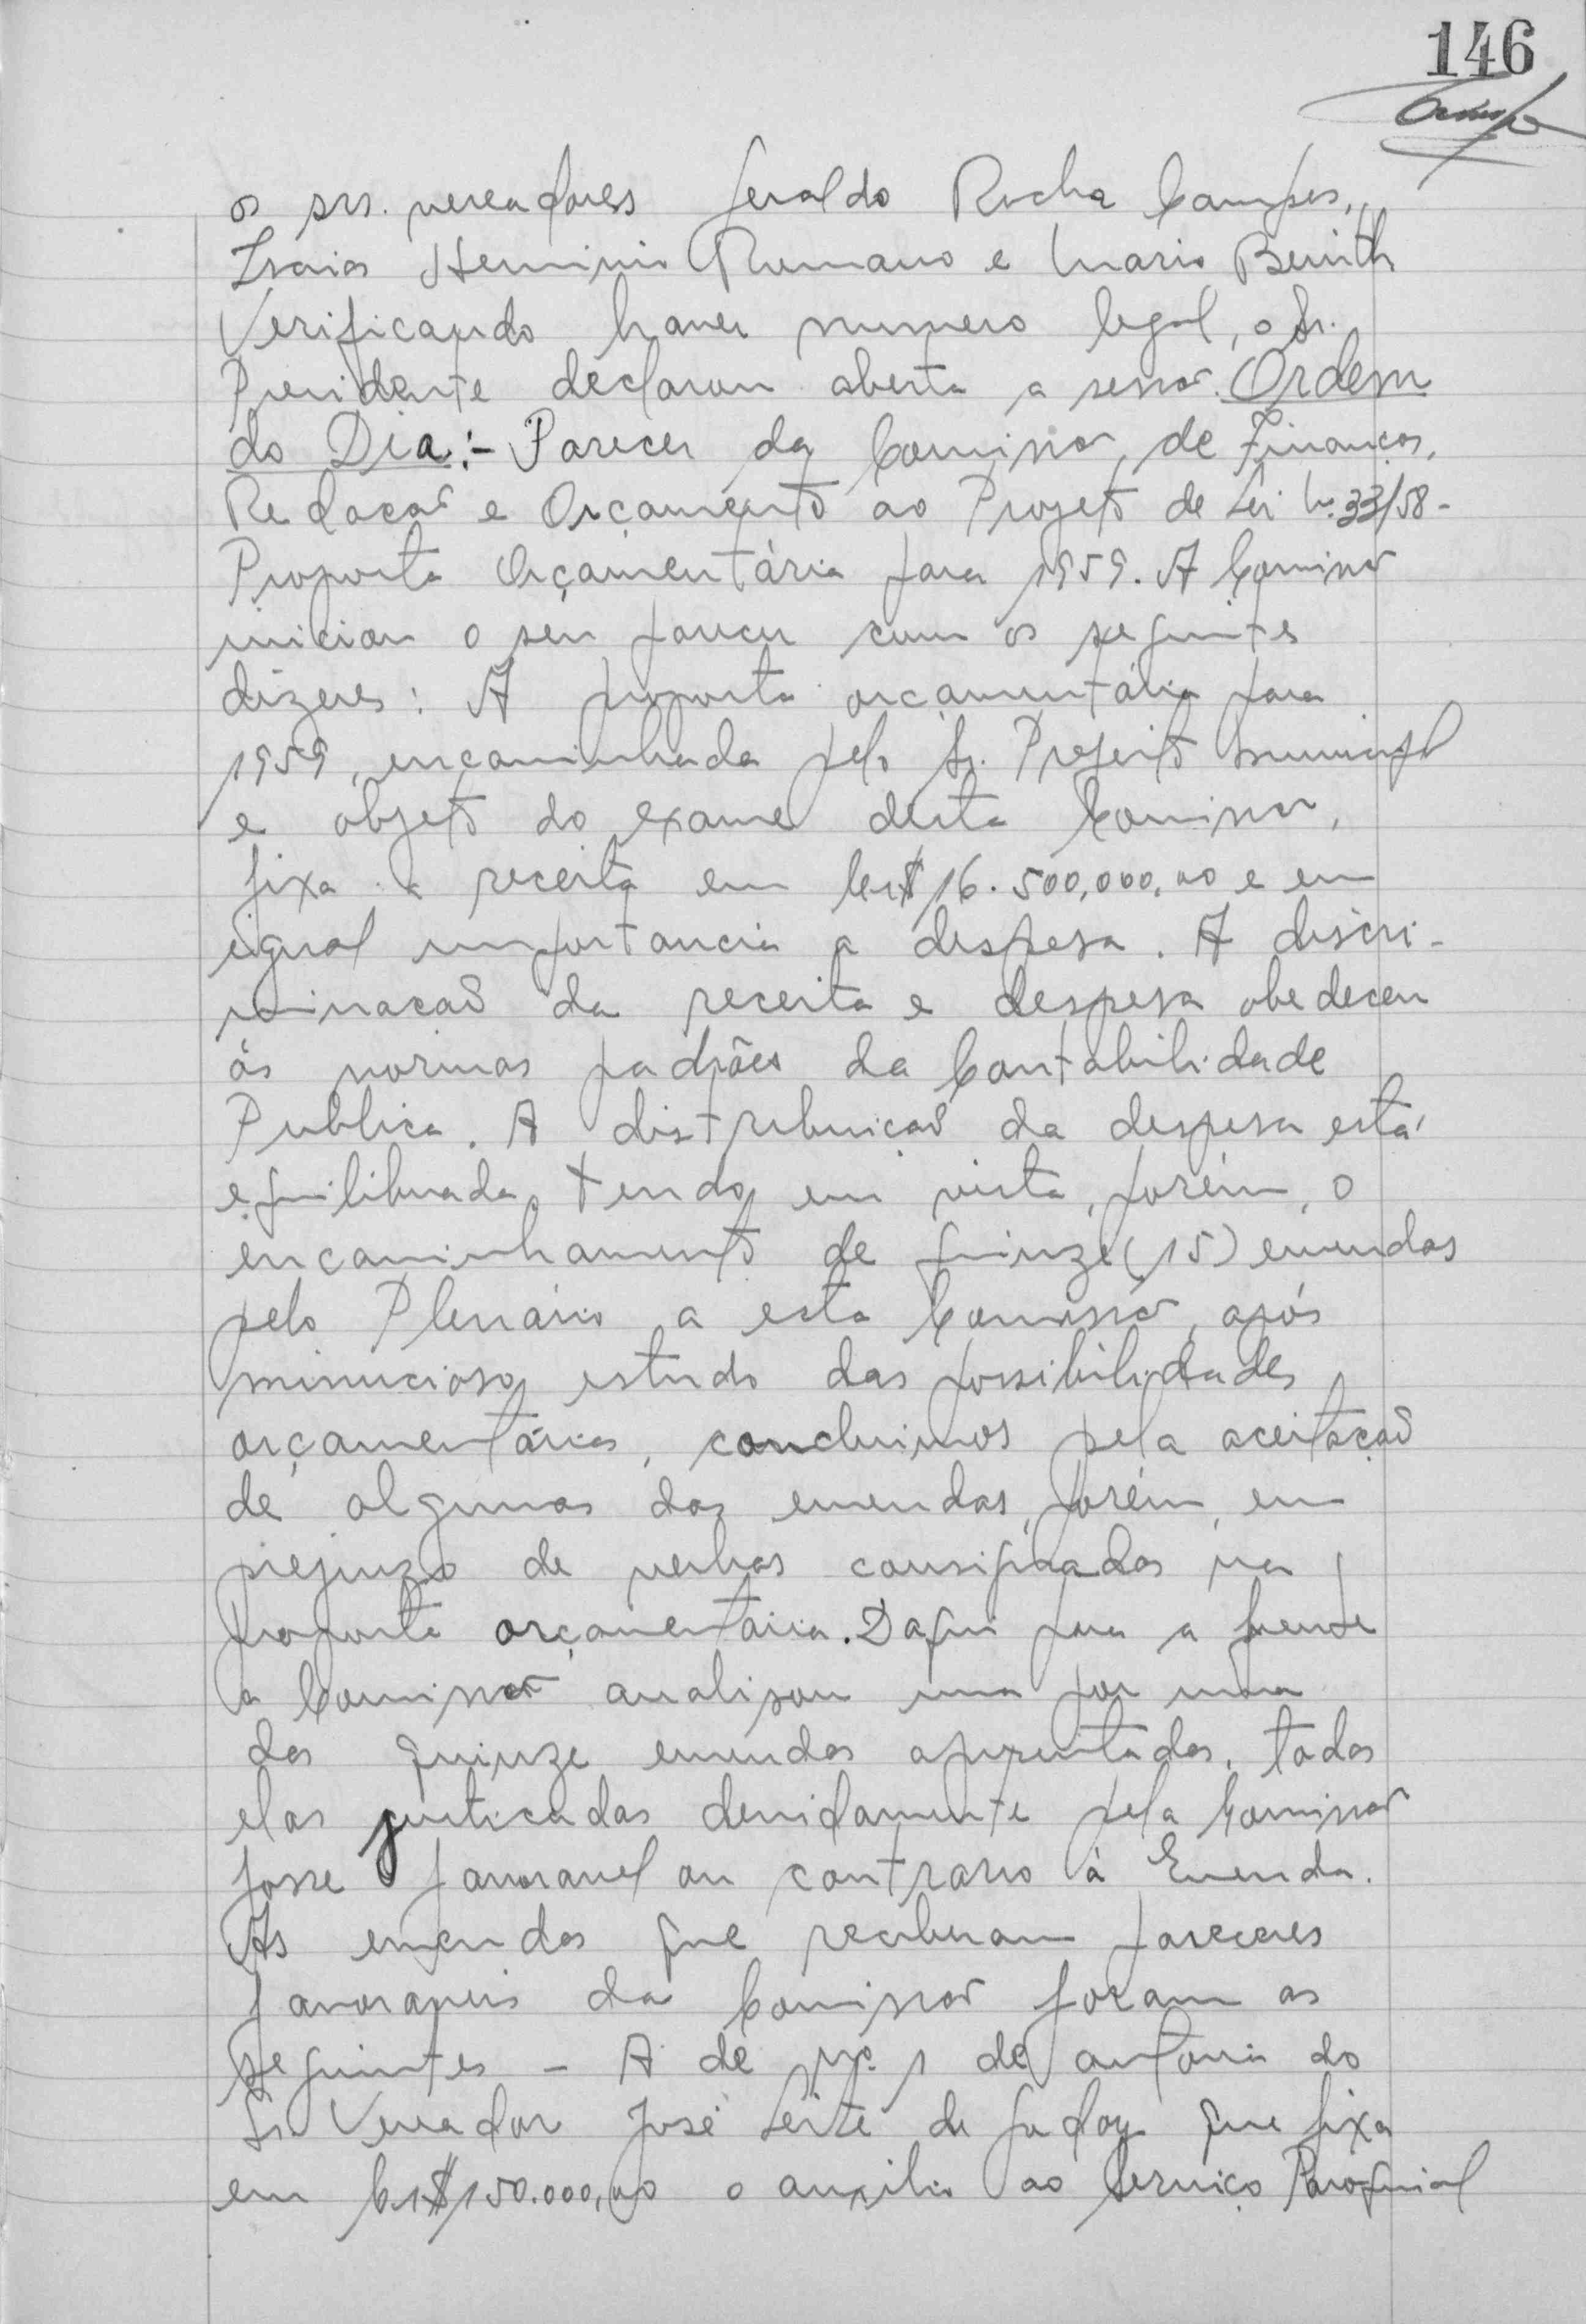 146
os srs. vereadores Geraldo Rocha Campos,
Isaias Herminio Romano e Mario Benith
Verificando haver numero legal, o Sr.
Presidente declarou aberta a sessão. Ordem
do Dia:- Parecer da Comissão, de Finanças,
Redacão e Orçamento ao Projeto de Lei Nº 33/58-
Proposta Orçamentária para 1959. A Comissão
iniciou o seu parecer com os seguintes
dizeres: A proposta orçamentária para
1959, encaminhada pelo Sr. Prefeito Municipal
e objeto do exame desta Comissão,
fixa a receita em Cr$ 16.500,000,00 e em
igual importancia a despesa. A discri-
minacão da receita e despesa obedeceu
ás normas padrões da Contabilidade
Publica. A distribuicão da despesa está
equilibrada, tendo em vista, porém, o
encaminhamento de quinze (15) emendas
pelo Plenário a esta Comissão, após
minucioso estudo das possibilidades
orçamentárias, concluimos pela aceitação
de algumas das emendas, porém, em
prejuizo de verbas consignadas na
proposta orçamentária. Daqui para a frente
a Comissão analisou uma por uma
das quinze emendas apresentadas, todas
elas justicadas devidamente pela Comissão
fosse favoravel ou contrario à Emenda.
As emendas que receberam pareceres
favoraveis da Comissão foram as
seguintes - A de nº 1 de autoria do
Sr. Vereador José Leite de Godoy que fixa
em Cr$ 150.000,00 o auxilio ao Serviço Paroquial